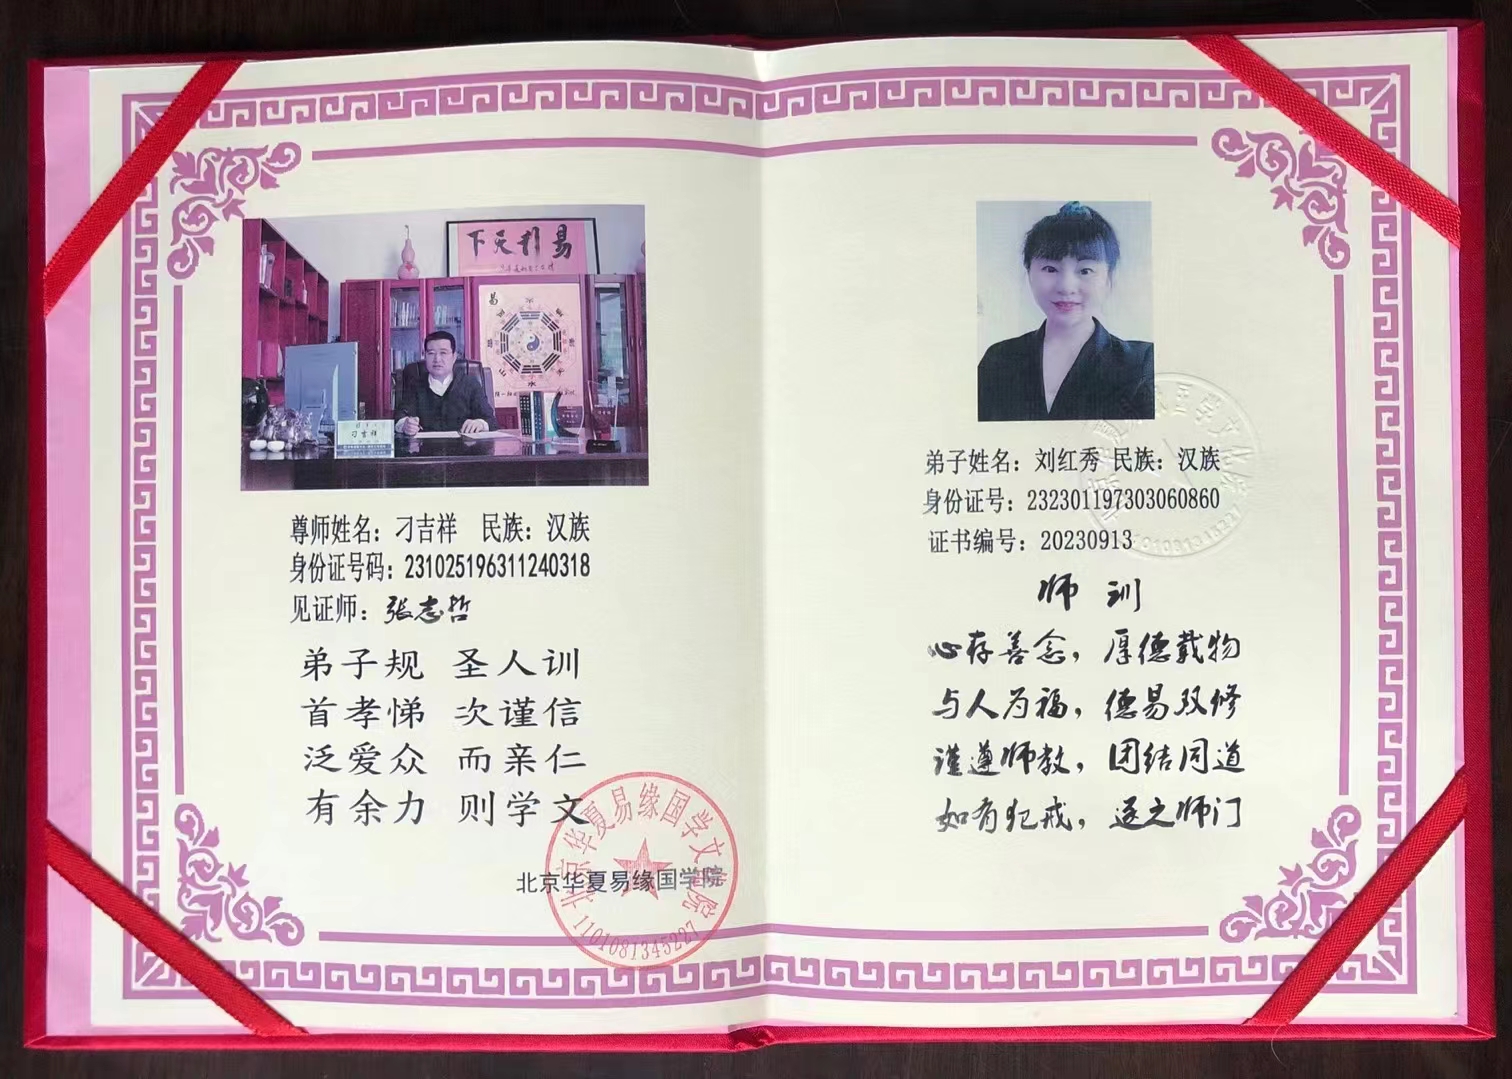 下天利易
易
刁吉祥
尊师姓名：刁吉祥 民族：汉族
身份证号码：231025196311240318
见证师：张志哲
弟子规 圣人训
首孝悌 次谨信
泛爱众 而亲仁
有余力 则学文
北京华夏易缘国学院
北京华夏易缘国学文化院
1101081345227
弟子姓名：刘红秀 民族：汉族
身份证号：232301197303060860
证书编号：20230913
师训
心存善念，厚德载物
与人为福，德易双修
谨遵师教，团结同道
如有犯戒，逐之师门